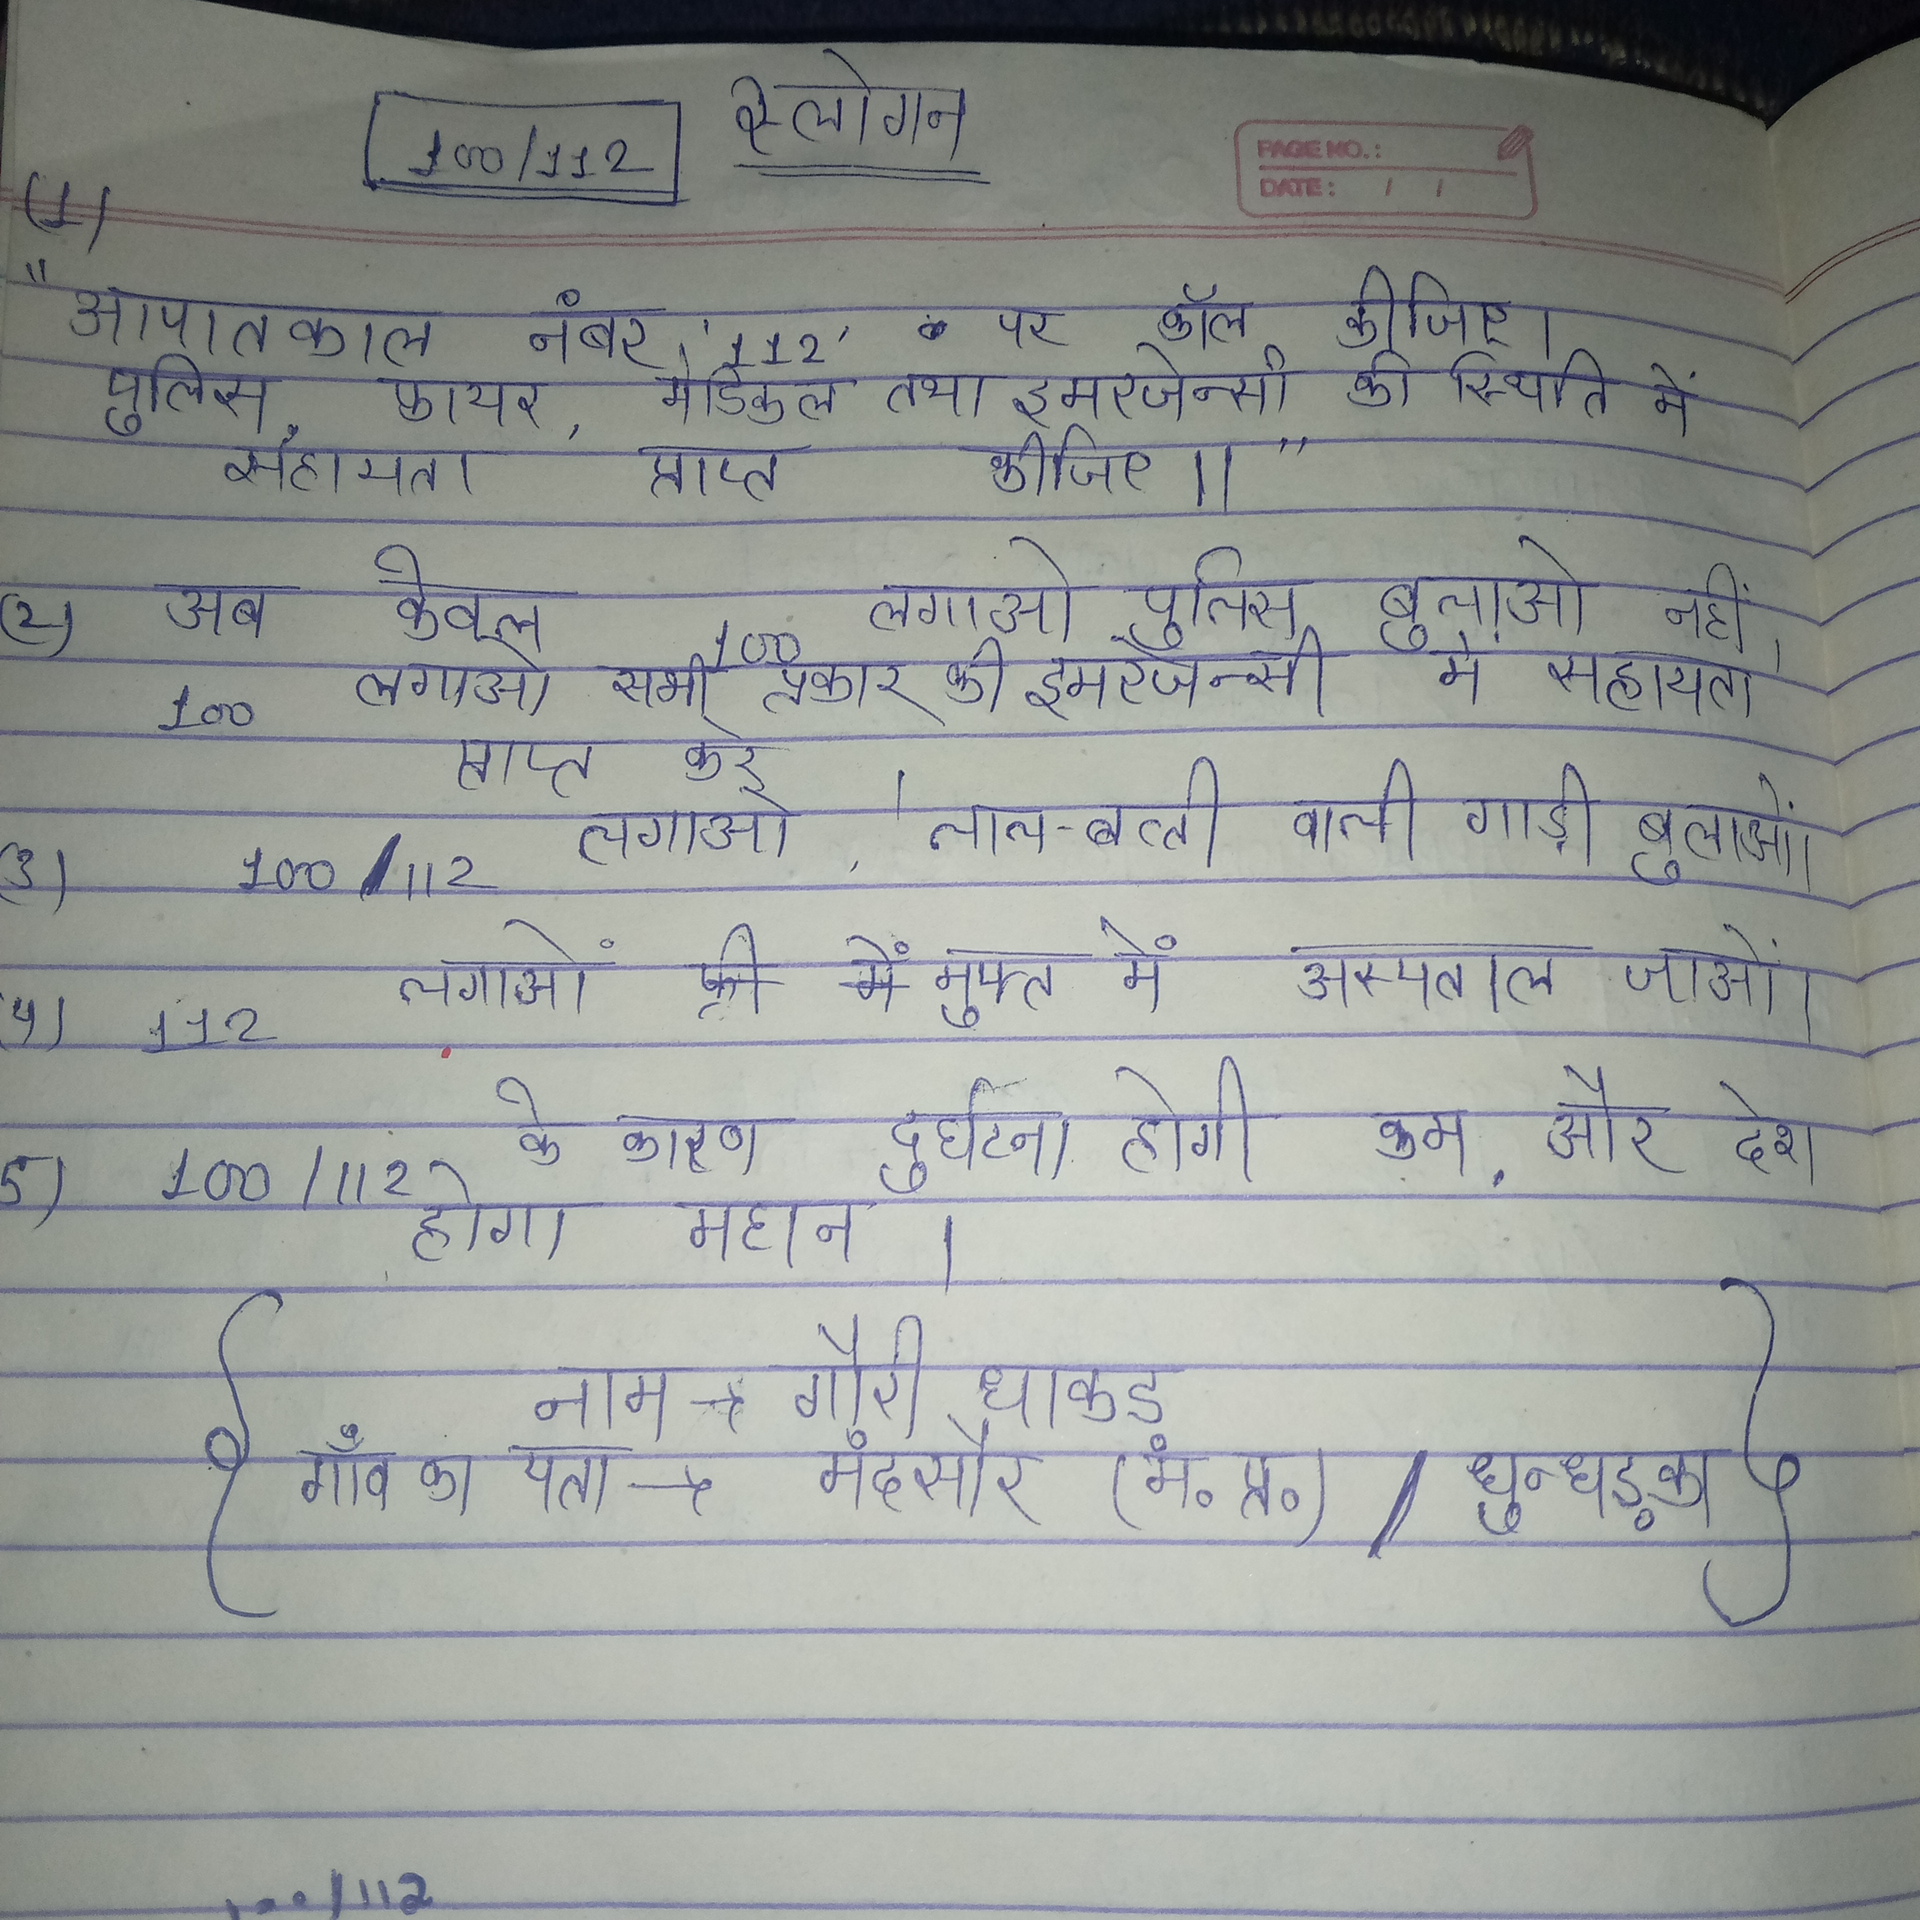 100/112 स्लोगन
PAGE NO.:
DATE: / /
(1)
"आपातकाल नंबर '112' पर कॉल कीजिए।
पुलिस, फायर, मेडिकल तथा इमरजेन्सी की स्थिति में
सहायता प्राप्त कीजिए।।"
(2) अब केवल 100 लगाओ पुलिस बुलाओ नहीं,
100 लगाओ सभी प्रकार की इमरजेन्सी में सहायता
प्राप्त करे
(3) 100/112 लगाओ, लाल-बत्ती वाली गाड़ी बुलाओं।
(4) 112 लगाओं फ्री में मुफ्त में अस्पताल जाओं।
5) 100/112 के कारण दुर्घटना होगी कम, और देश
होगा महान।
नाम → गौरी धाकड
गाँव का पता → मंदसौर (म.प्र.) / धुन्धड़का
100/112